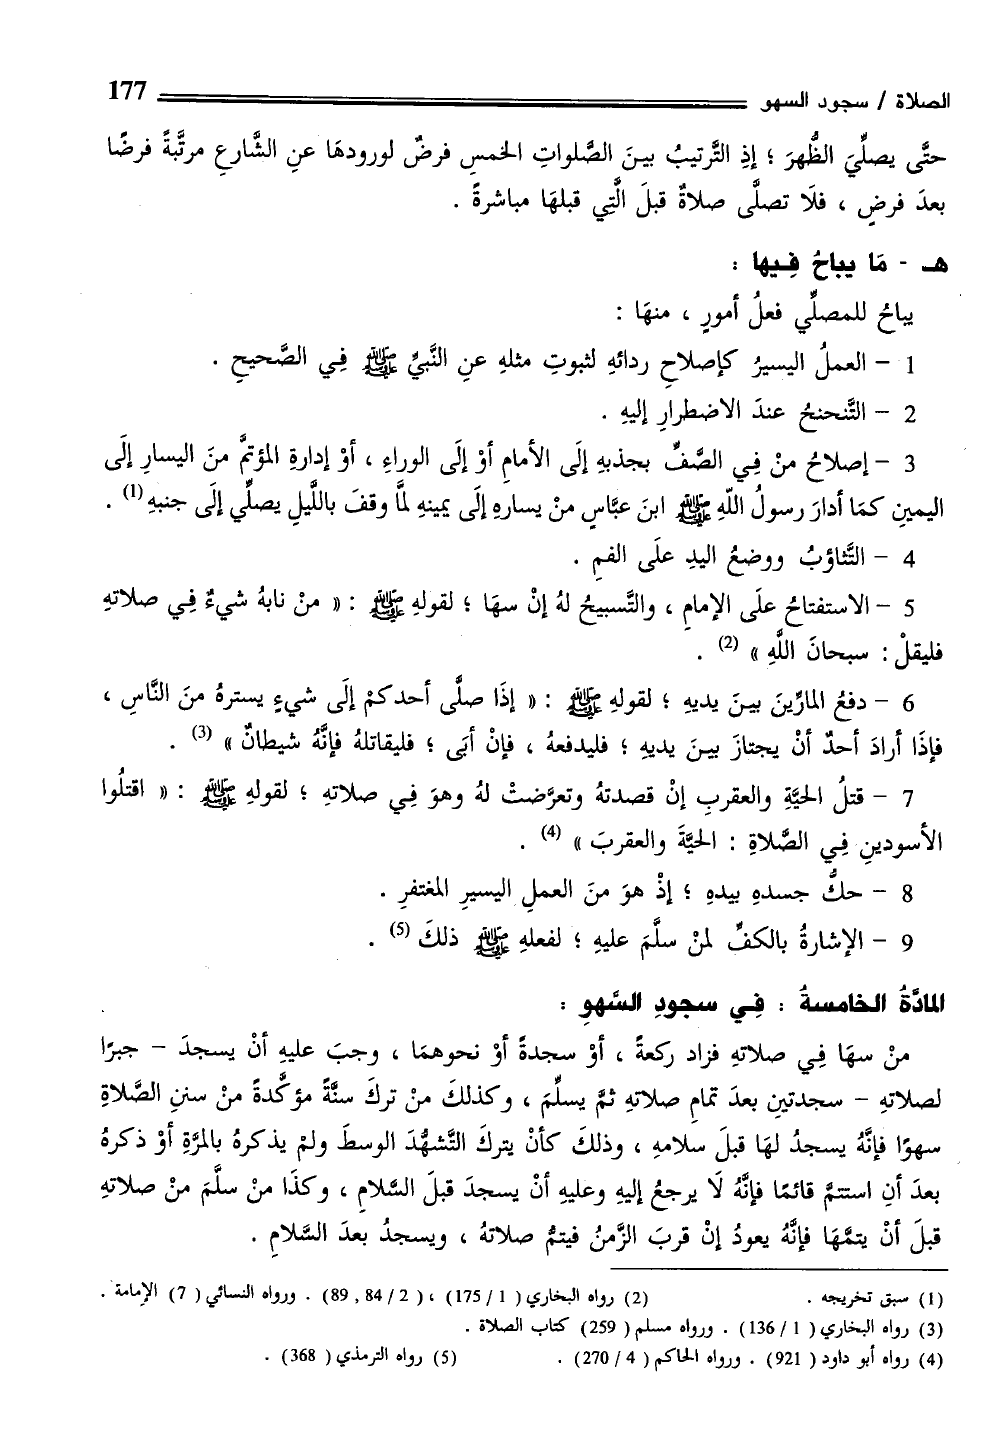 الصلاة / سجود السهو 177
حتَّى يصلِّيَ الظُّهرَ ؛ إذِ التَّرتيبُ بينَ الصَّلواتِ الخمسِ فرضٌ لورودهَا عنِ الشَّارعِ مرتَّبةً فرضًا
بعدَ فرضٍ ، فلَا تصلَّى صلاةٌ قبلَ الَّتِي قبلهَا مباشرةً .
هـ - مَا يباحُ فِيها :
يباحُ للمصلِّي فعلُ أمورٍ ، منهَا :
1 – العملُ اليسيرُ كإصلاحِ ردائهِ لثبوتِ مثلهِ عنِ النَّبيِّ ﷺ فِي الصَّحيحِ .
2 – التَّنحنحُ عندَ الاضطرارِ إليهِ .
3 – إصلاحُ منْ فِي الصَّفِّ بجذبهِ إلَى الأمامِ أوْ إلَى الوراءِ ، أوْ إدارةِ المؤتمِّ منَ اليسارِ إلَى
اليمينِ كمَا أدارَ رسولُ اللّهِ ﷺ ابنَ عبَّاسٍ منْ يسارهِ إلَى يمينهِ لمَّا وقفَ باللَّيلِ يصلِّي إلَى جنبهِ (1) .
4 – التَّثاؤبُ ووضعُ اليدِ علَى الفمِ .
5 – الاستفتاحُ علَى الإمامِ ، والتَّسبيحُ لهُ إنْ سهَا ؛ لقولهِ ﷺ : « منْ نابهُ شيءٌ فِي صلاتهِ
فليقلْ : سبحانَ اللَّهِ » (2) .
6 – دفعُ المارِّينَ بينَ يديهِ ؛ لقولهِ ﷺ : « إذَا صلَّى أحدكمْ إلَى شيءٍ يسترهُ منَ النَّاسِ ،
فإذَا أرادَ أحدٌ أنْ يجتازَ بينَ يديهِ ؛ فليدفعهُ ، فإنْ أبَى ؛ فليقاتلهُ فإنَّهُ شيطانٌ » (3) .
7 – قتلُ الحيَّةِ والعقربِ إنْ قصدتهُ وتعرَّضتْ لهُ وهوَ فِي صلاتهِ ؛ لقولهِ ﷺ : « اقتلُوا
الأسودينِ فِي الصَّلاةِ : الحيَّةَ والعقربَ » (4) .
8 – حكُّ جسدهِ بيدهِ ؛ إذْ هوَ منَ العملِ اليسيرِ المغتفرِ .
9 – الإشارةُ بالكفِّ لمنْ سلَّمَ عليهِ ؛ لفعلهِ ﷺ ذلكَ (5) .
المادَّةُ الخامسةُ : فِي سجودِ السَّهوِ :
منْ سهَا فِي صلاتهِ فزاد ركعةً ، أوْ سجدةً أوْ نحوهمَا ، وجبَ عليهِ أنْ يسجدَ – جبرًا
لصلاتهِ – سجدتينِ بعدَ تمامِ صلاتهِ ثمَّ يسلِّمَ ، وكذلكَ منْ تركَ سنَّةً مؤكَّدةً منْ سننِ الصَّلاةِ
سهوًا فإنَّهُ يسجدُ لهَا قبلَ سلامهِ ، وذلكَ كأنْ يتركَ التَّشهُّدَ الوسطَ ولمْ يذكرهُ بالمرَّةِ أوْ ذكرهُ
بعدَ أنِ استتمَّ قائمًا فإنَّهُ لَا يرجعُ إليهِ وعليهِ أنْ يسجدَ قبلَ السَّلامِ ، وكذَا منْ سلَّمَ منْ صلاتهِ
قبلَ أنْ يتمَّهَا فإنَّهُ يعودُ إنْ قربَ الزَّمنُ فيتمُّ صلاتهُ ، ويسجدُ بعدَ السَّلامِ .
(1) سبق تخريجه . (2) رواه البخاري ( 1 / 175) ، ( 2 / 84 , 89) . ورواه النسائي ( 7) الإمامة .
(3) رواه البخاري ( 1 / 136) . ورواه مسلم ( 259) كتاب الصلاة .
(4) رواه أبو داود ( 921) . ورواه الحاكم ( 4 / 270) . (5) رواه الترمذي ( 368) .